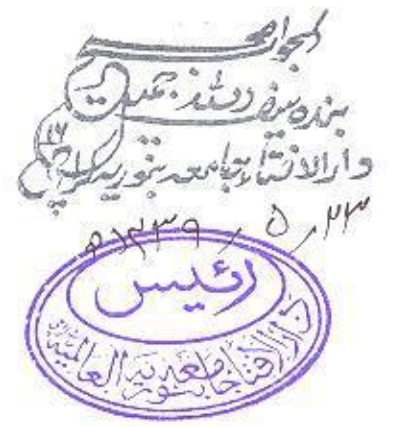 الجواب صحیح
بندہ سیف اللہ جمیل
دارالافتاء جامعہ بنوریہ کراچی ۱۶
۲۳ / ۵ / ۱۴۳۹ھ
رئیس
دار الافتا جامعة بنورية العالمية